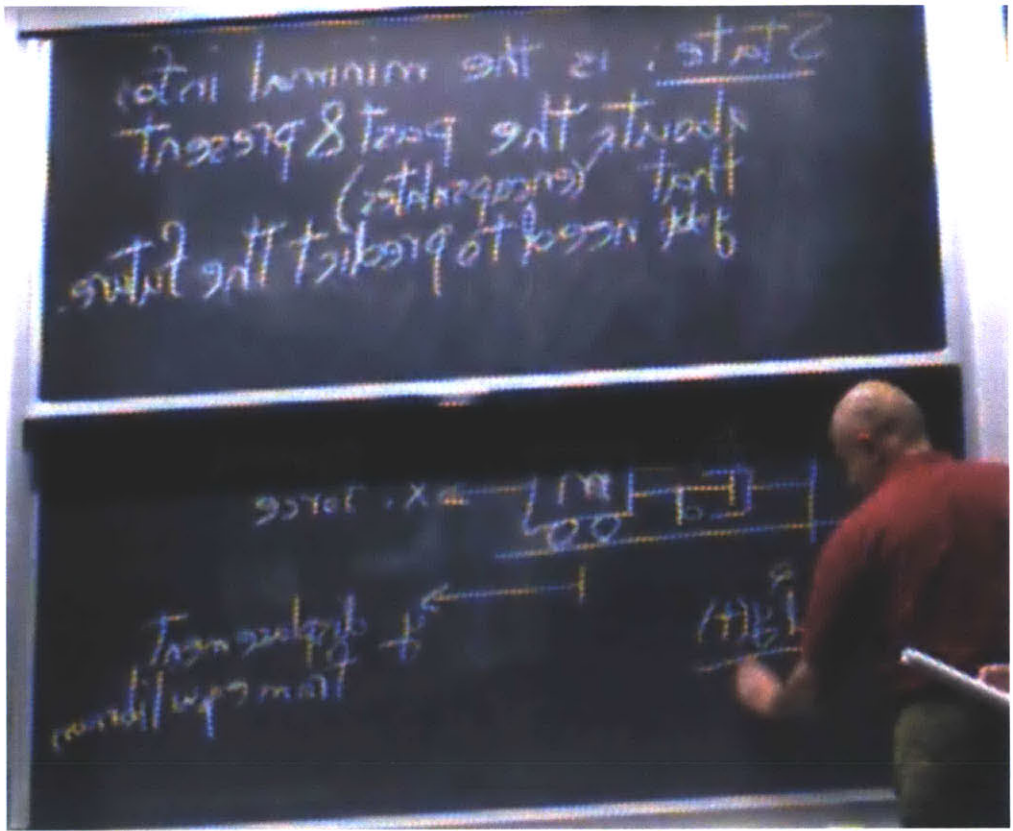 State: is the minimal info.
about the past & present
that (encapsulates)
you need to predict the future.
b M x, force
y displacement
from equilibrium